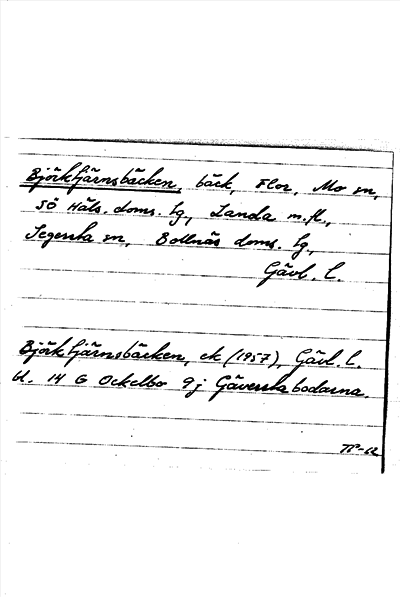 Björktjärnsbäcken, bäck, Flor, Mo sn,
Sö Häls. doms. hg, Landa m.fl.,
Segersta sn, Bollnäs doms. hg,
Gävl. l.
Björktjärnsbäcken, ek (1957), Gävl. l.
bl. 14 G Ockelbo 9j Gäverstabodarna.
TP-62